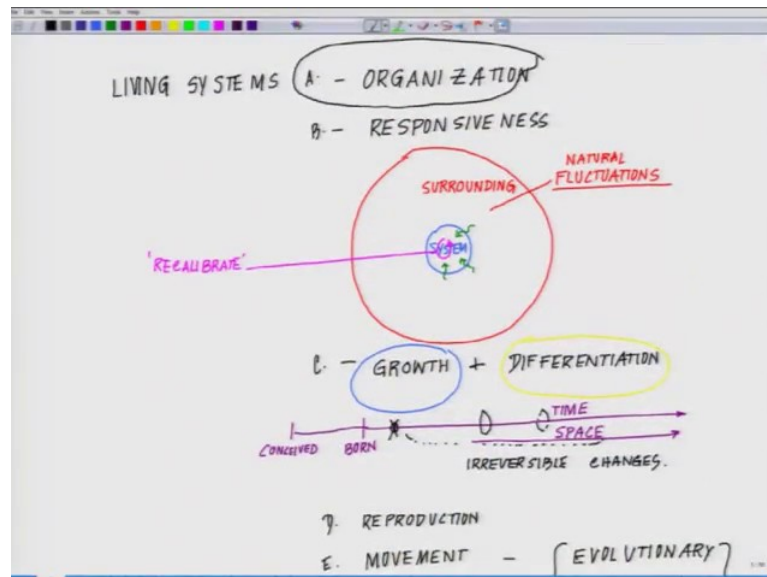 LIVING SYSTEMS A. - ORGANIZATION
B. - RESPONSIVENESS
NATURAL
FLUCTUATIONS
SURROUNDING
SYSTEM
'RECALIBRATE'
C. - GROWTH + DIFFERENTIATION
TIME
SPACE
CONCEIVED BORN
IRREVERSIBLE CHANGES.
D. REPRODUCTION
E. MOVEMENT - [EVOLUTIONARY]